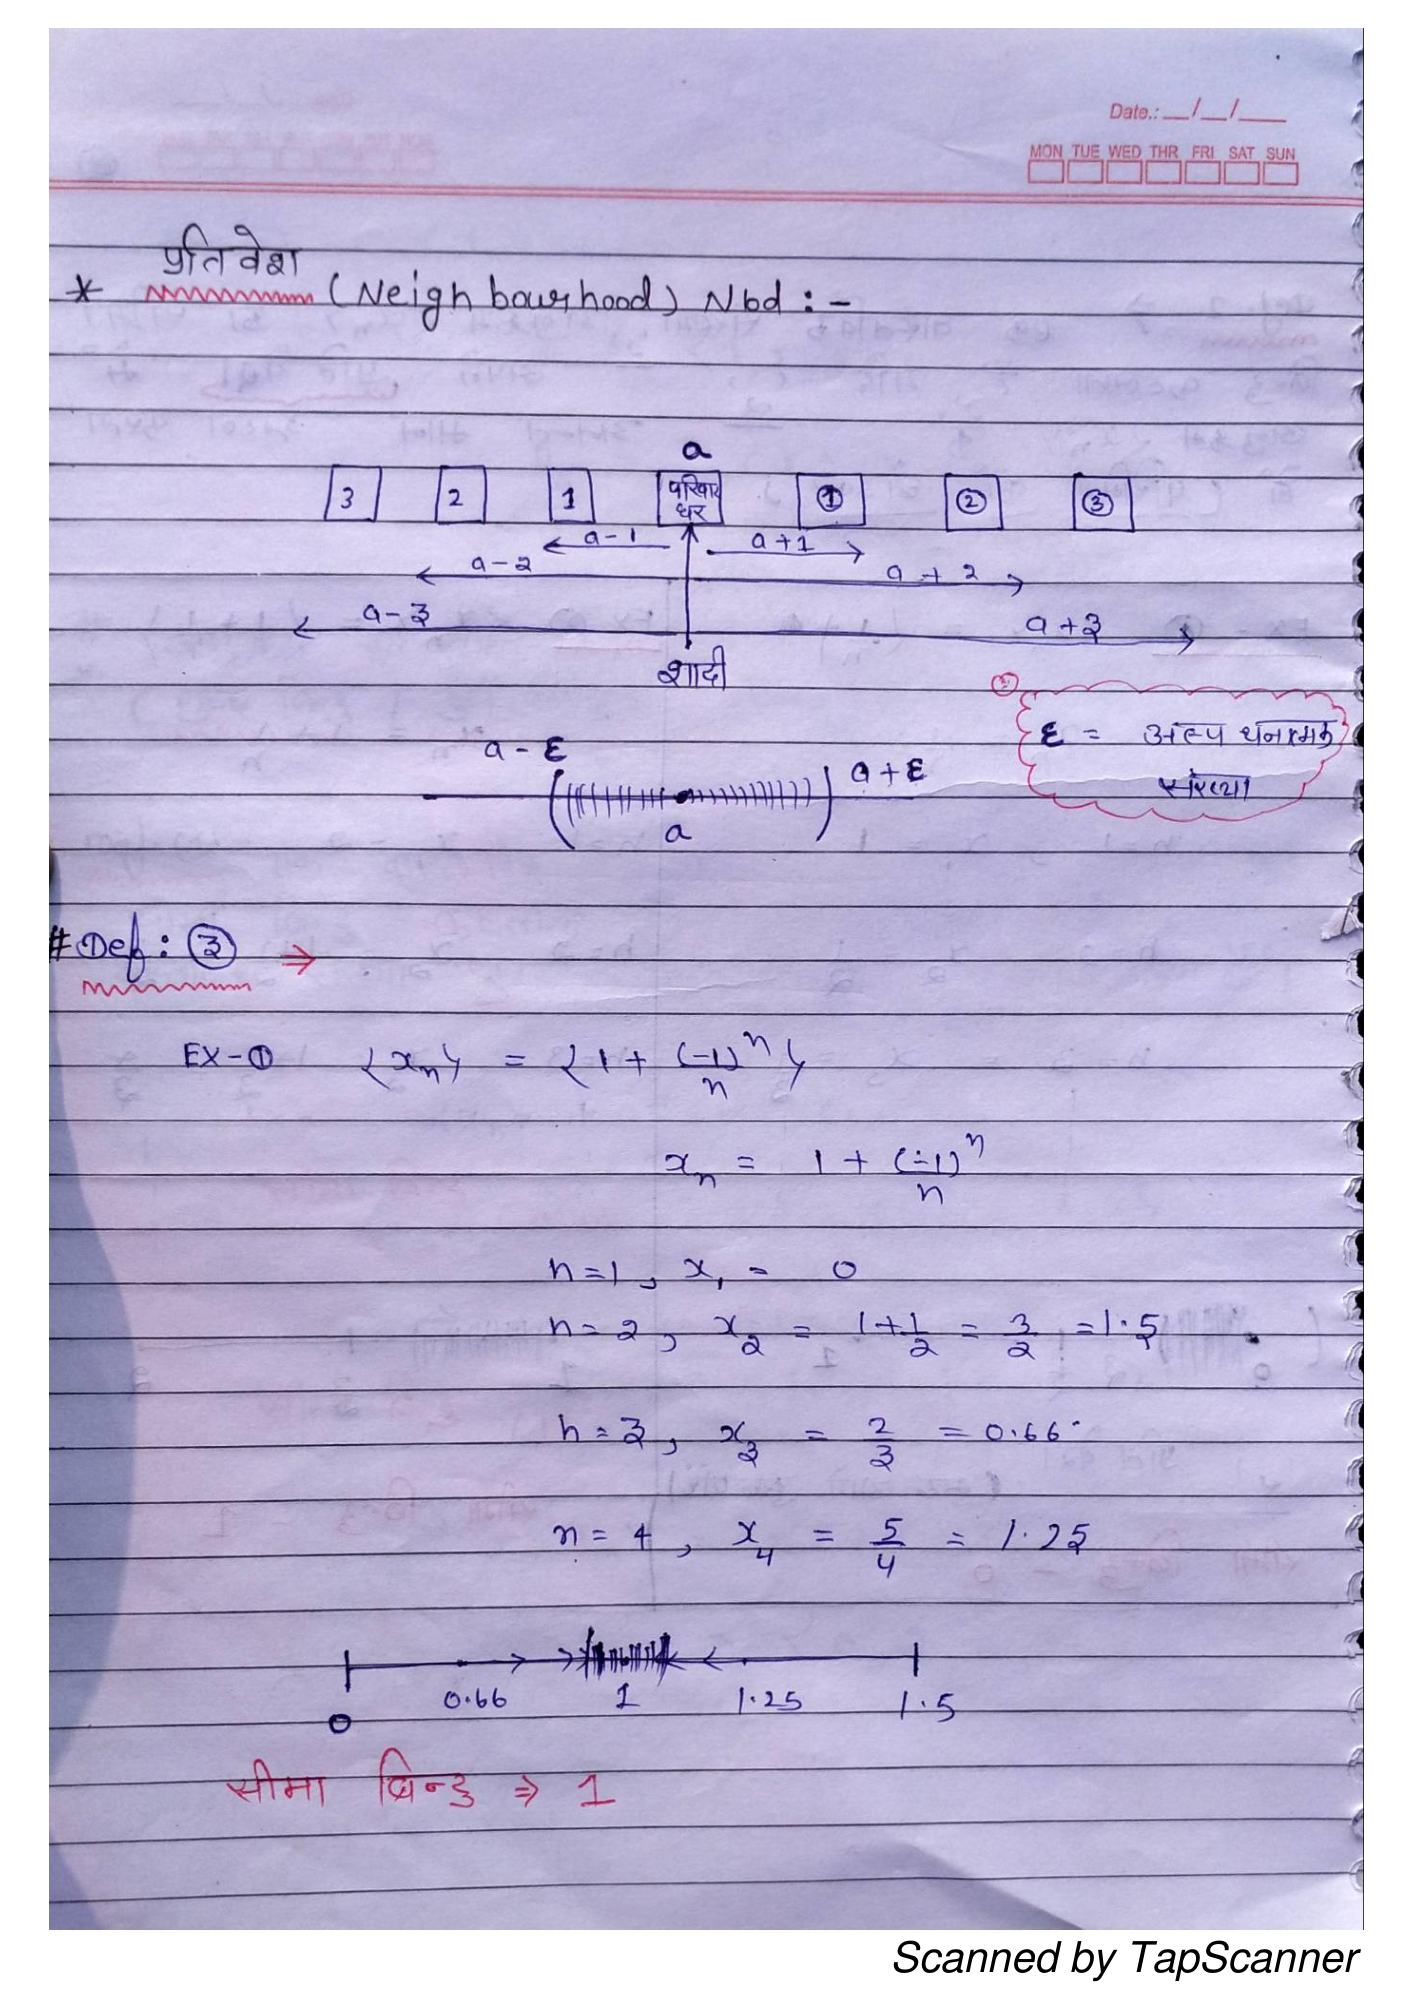 Date.: __/__/___
MON TUE WED THR FRI SAT SUN
प्रतिवेश
* (Neighbourhood) Nbd :-
a
3 2 1 परिवार घर ① ② ③
a-1 a+1
a-2 a+2
a-3 a+3
शादी
a-ε a+ε
a
ε = अल्प धनात्मक
संख्या
# Def : ③ ⇒
EX-① {xₙ} = {1 + (-1)ⁿ/n}
xₙ = 1 + (-1)ⁿ/n
n=1, x₁ = 0
n=2, x₂ = 1+1/2 = 3/2 = 1.5
n=3, x₃ = 2/3 = 0.66
n=4, x₄ = 5/4 = 1.25
0.66 1 1.25 1.5
0
सीमा बिन्दु ⇒ 1
Scanned by TapScanner